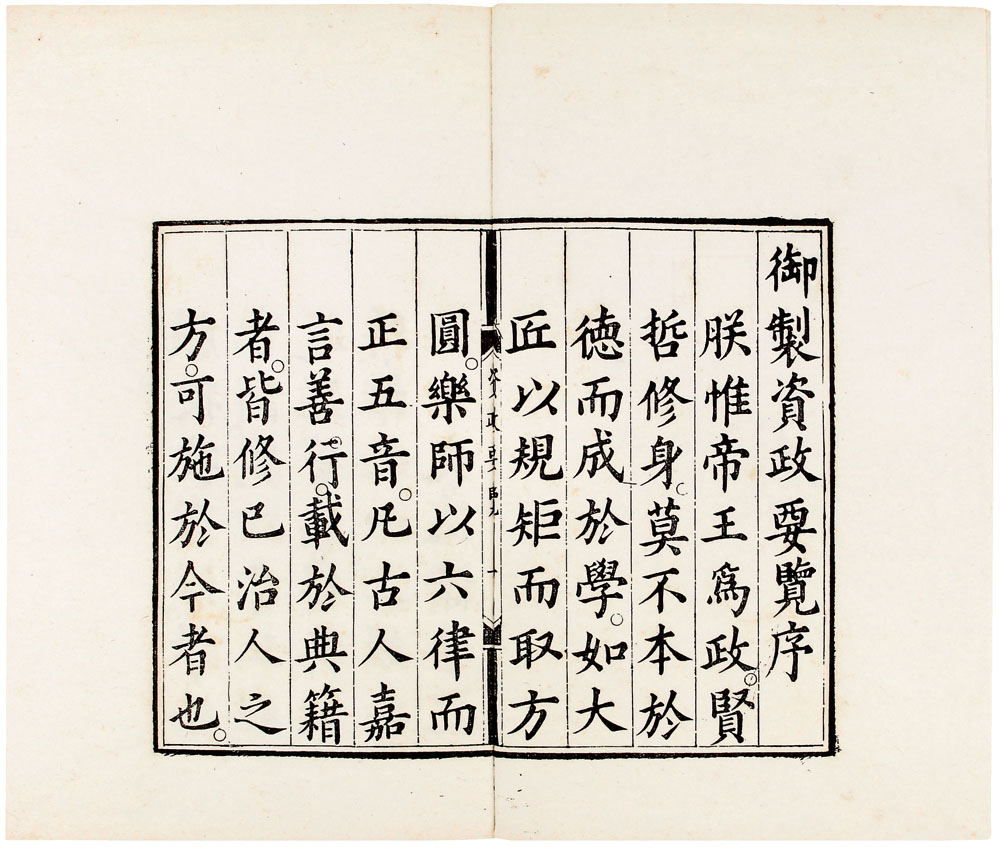 御製資政要覽序
朕惟帝王為政。賢
哲修身。莫不本於
徳而成於學。如大
匠以規矩而取方
圓。樂師以六律而
正五音。凡古人嘉
言善行。載於典籍
者。皆修己治人之
方。可施於今者也。
資政要覽
一